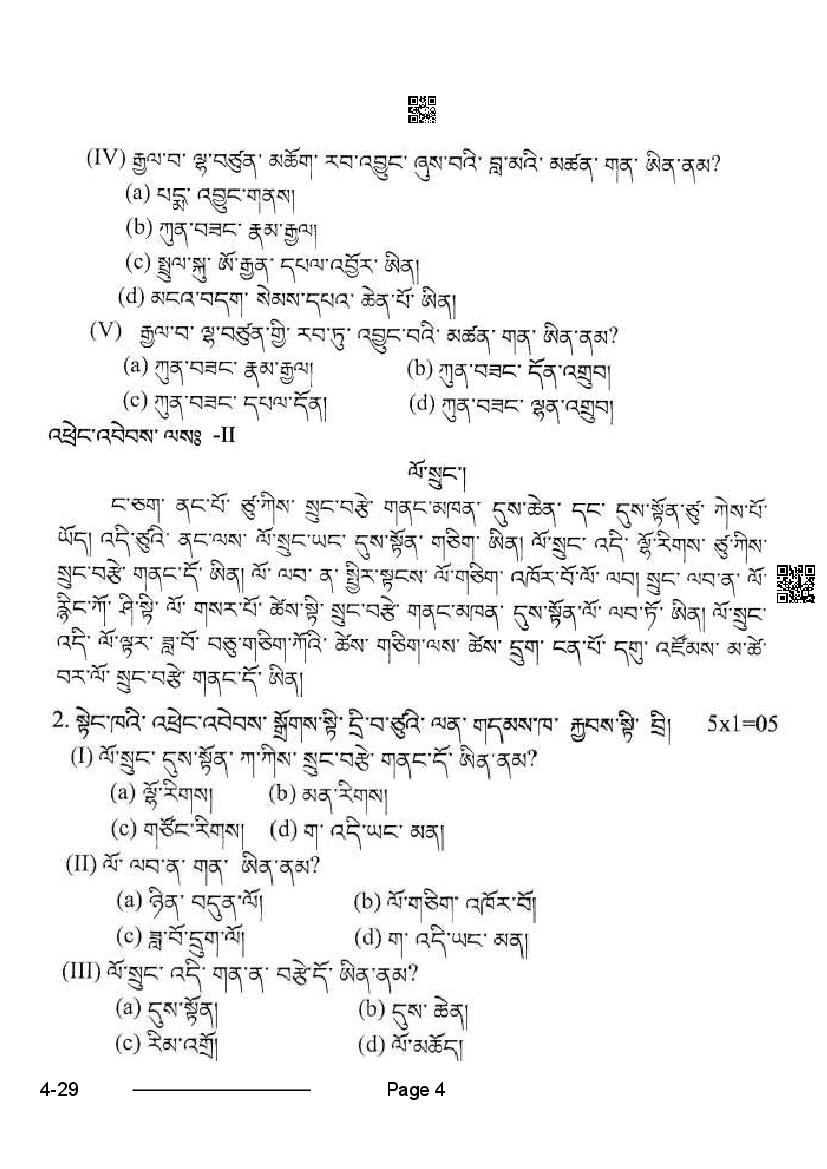 (IV) རྒྱལ་བ་ ལྷ་བཙུན་ མཆོག་ རབ་འབྱུང་ ཞུས་བའི་ བླ་མའི་ མཚན་ གན་ ཨིན་ནམ?
(a) པདྨ་ འབྱུང་གནས།
(b) ཀུན་བཟང་ རྣམ་རྒྱལ།
(c) སྤྲུལ་སྐུ་ ཨོ་རྒྱན་ དཔལ་འབྱོར་ ཨིན།
(d) མངའ་བདག་ སེམས་དཔའ་ ཆེན་པོ་ ཨིན།
(V) རྒྱལ་བ་ ལྷ་བཙུན་གྱི་ རབ་ཏུ་ འབྱུང་བའི་ མཚན་ གན་ ཨིན་ནམ?
(a) ཀུན་བཟང་ རྣམ་རྒྱལ། (b) ཀུན་བཟང་ དོན་འགྲུབ།
(c) ཀུན་བཟང་ དཔལ་དོན། (d) ཀུན་བཟང་ ལྷན་འགྲུབ།
འཕྲེང་འབེབས་ ལསཿ -II
ལོ་སྲུང་།
ང་ཅག་ ནང་པོ་ ཙུ་ཀིས་ སྲུང་བརྩེ་ གནང་མཁན་ དུས་ཆེན་ དང་ དུས་སྟོན་ཙུ་ ཀེས་པོ་
ཡོད། འདི་ཙུའི་ ནང་ལས་ ལོ་སྲུང་ཡང་ དུས་སྟོན་ གཅིག་ ཨིན། ལོ་སྲུང་ འདི་ ལྷོ་རིགས་ ཙུ་ཀིས་
སྲུང་བརྩེ་ གནང་དོ་ ཨིན། ལོ་ ལབ་ ན་ སྤྱིར་སྟངས་ ལོ་གཅིག་ འཁོར་བོ་ལོ་ ལབ། སྲུང་ ལབ་ན་ ལོ་
རྙིང་ཀོ་ ཤི་སྟི་ ལོ་ གསར་པོ་ ཚེས་སྟེ་ སྲུང་བརྩེ་ གནང་མཁན་ དུས་སྟོན་ལོ་ ལབ་ཏོ་ ཨིན། ལོ་སྲུང་
འདི་ ལོ་ལྟར་ ཟླ་བོ་ བཅུ་གཅིག་ཀོའི་ ཚེས་ གཅིག་ལས་ ཚེས་ དྲུག་ ངན་པོ་ དགུ་ འཛོམས་ མ་ཚེ་
བར་ལོ་ སྲུང་བརྩེ་ གནང་དོ་ ཨིན།
2. སྟེང་ཁའི་ འཕྲེང་འབེབས་ སྒྲོགས་སྟི་ དྲི་བ་ཙུའི་ ལན་ གདམས་ཁ་ རྐྱབས་སྟི་ བྲི། 5x1=05
(I) ལོ་སྲུང་ དུས་སྟོན་ ཀ་ཀིས་ སྲུང་བརྩེ་ གནང་དོ་ ཨིན་ནམ?
(a) ལྷོ་རིགས། (b) མན་རིགས།
(c) གཙོང་རིགས། (d) ག་ འདི་ཡང་ མན།
(II) ལོ་ ལབ་ན་ གན་ ཨིན་ནམ?
(a) ཉིན་ བདུན་ལོ། (b) ལོ་གཅིག་ འཁོར་བོ།
(c) ཟླ་བོ་དྲུག་ལོ། (d) ག་ འདི་ཡང་ མན།
(III) ལོ་སྲུང་ འདི་ གན་ན་ བརྩེ་དོ་ ཨིན་ནམ?
(a) དུས་སྟོན། (b) དུས་ ཆེན།
(c) རིམ་འགྲོ། (d) ལོ་མཆོད།
4-29 Page 4